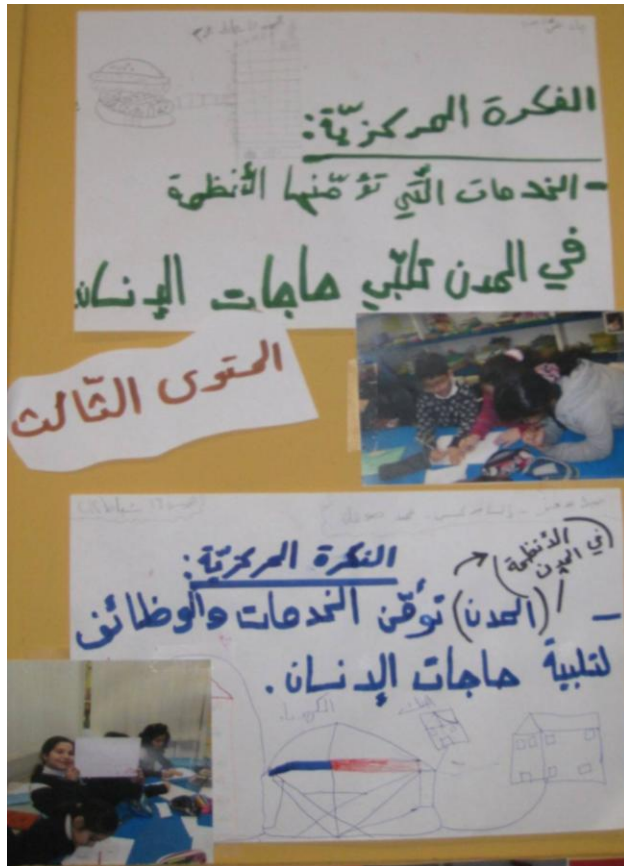 الفكرة المركزيّة:
- الخدمات الّتي تؤمّنها الأنظمة
في المدن تلبّي حاجات الإنسان
المحتوى الثّالث
الفكرة المركزيّة:
(في الأنظمة المدن)
- (المدن) تومّن الخدمات والوظائف
لتلبية حاجات الإنسان.
الكهرباء